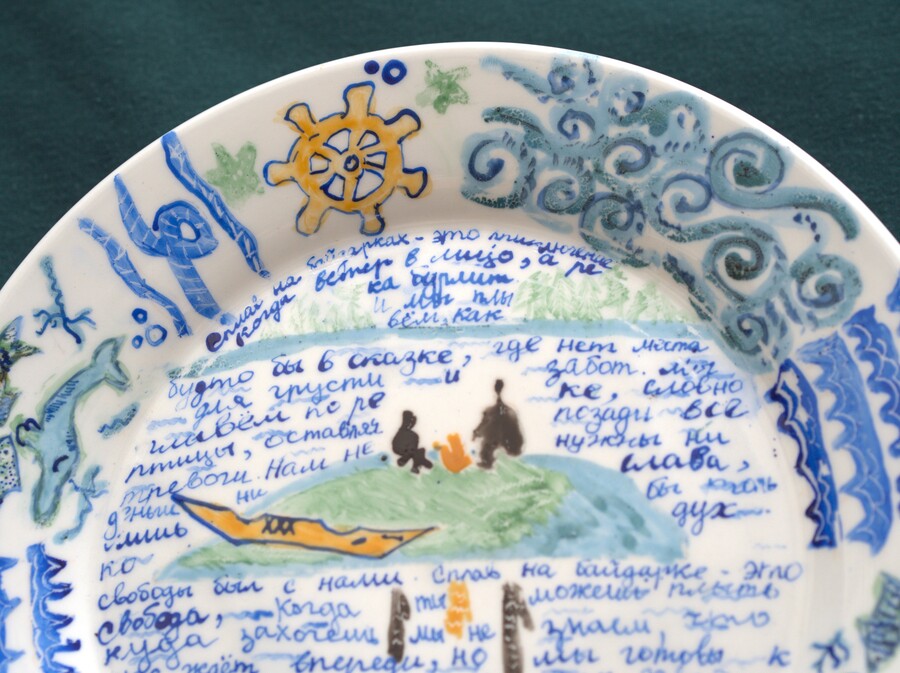 Сплав на байдарках - это
когда ветер в лицо, а ре
ка бурлит
и мы плы
вём, как
будто бы в сказке, где нет места
для грусти и забот. мы
плывём по ре ке, словно
птицы, оставляя позади все
тревоги. Нам не нужны ни
ни слава,
лишь бы
дух
свободы был с нами. Сплав на байдарке - это
свобода, когда ты можешь плыть
куда захочешь мы не знаем, что
ждёт впереди, но мы готовы к